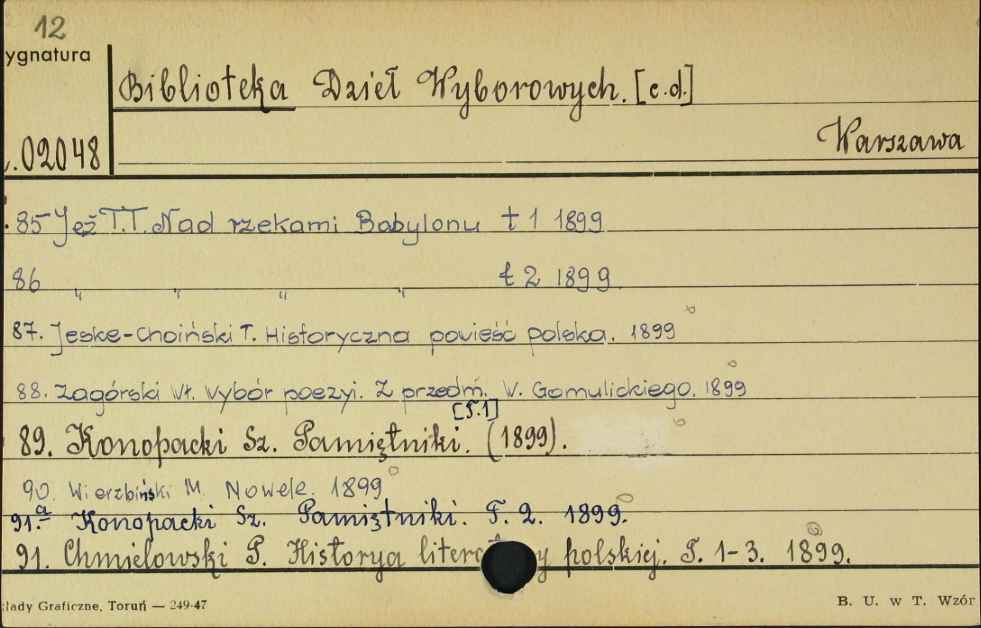 12
ygnatura
Biblioteka Dzieł Wyborowych. [c.d.]
.02048
Warszawa
85 Jeż T.T. Nad rzekami Babylonu t 1 1899
86 " " " " t 2 1899
87. Jeske-Choiński T. Historyczna powieść polska. 1899
88. Zagórski Wł. Wybór poezyi. Z przedm. W. Gomulickiego. 1899
89. Konopacki Sz. Pamiętniki. [T.1] (1899).
90. Wierzbiński M. Nowele. 1899
91.a Konopacki Sz. Pamiętniki. T. 2. 1899.
91. Chmielowski P. Historya literat y polskiej. T. 1-3. 1899.
łady Graficzne, Toruń — 249-47
B. U. w T. Wzór